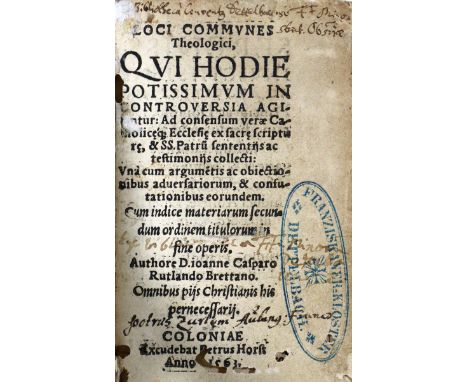 LOCI COMMVNES
Theologici,
QVI HODIE
POTISSIMVM IN
CONTROVERSIA AGI-
tantur: Ad consensum veræ Ca
tholicęq; Ecclesię ex sacrę scriptu
rę, & SS. Patrũ sententijs ac
testimonijs collecti:
Vnà cum argumẽtis ac obiectio
nibus aduersariorum, & confu-
tationibus eorundem.
Cum indice materiarum secun
dum ordinem titulorum in
fine operis.
Authore D. Ioanne Casparo
Rutlando Brettano.
Omnibus pijs Christianis his
pernecessarij.
COLONIAE
Excudebat Petrus Horst
Anno 1563.
FRANZISKANER-KLOSTER
DETTELBACH